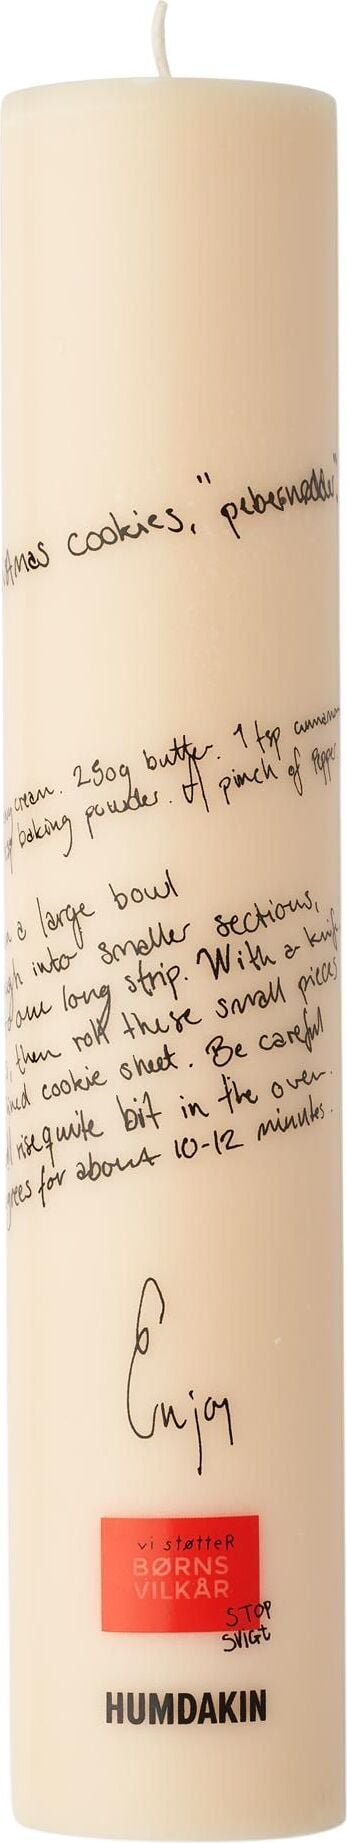 cookies, "pebernødder,"
cream. 250g butter. 1 tsp cinnamon
baking powder. 1/2 pinch of Pepper
a large bowl
into smaller sections,
one long strip. With a knife
, then roll these small pieces
cookie sheet. Be careful
rise quite bit in the oven.
for about 10-12 minutes.
Enjoy
vi støtteR
BØRNS
VILKÅR
STOP
SVIGt
HUMDAKIN